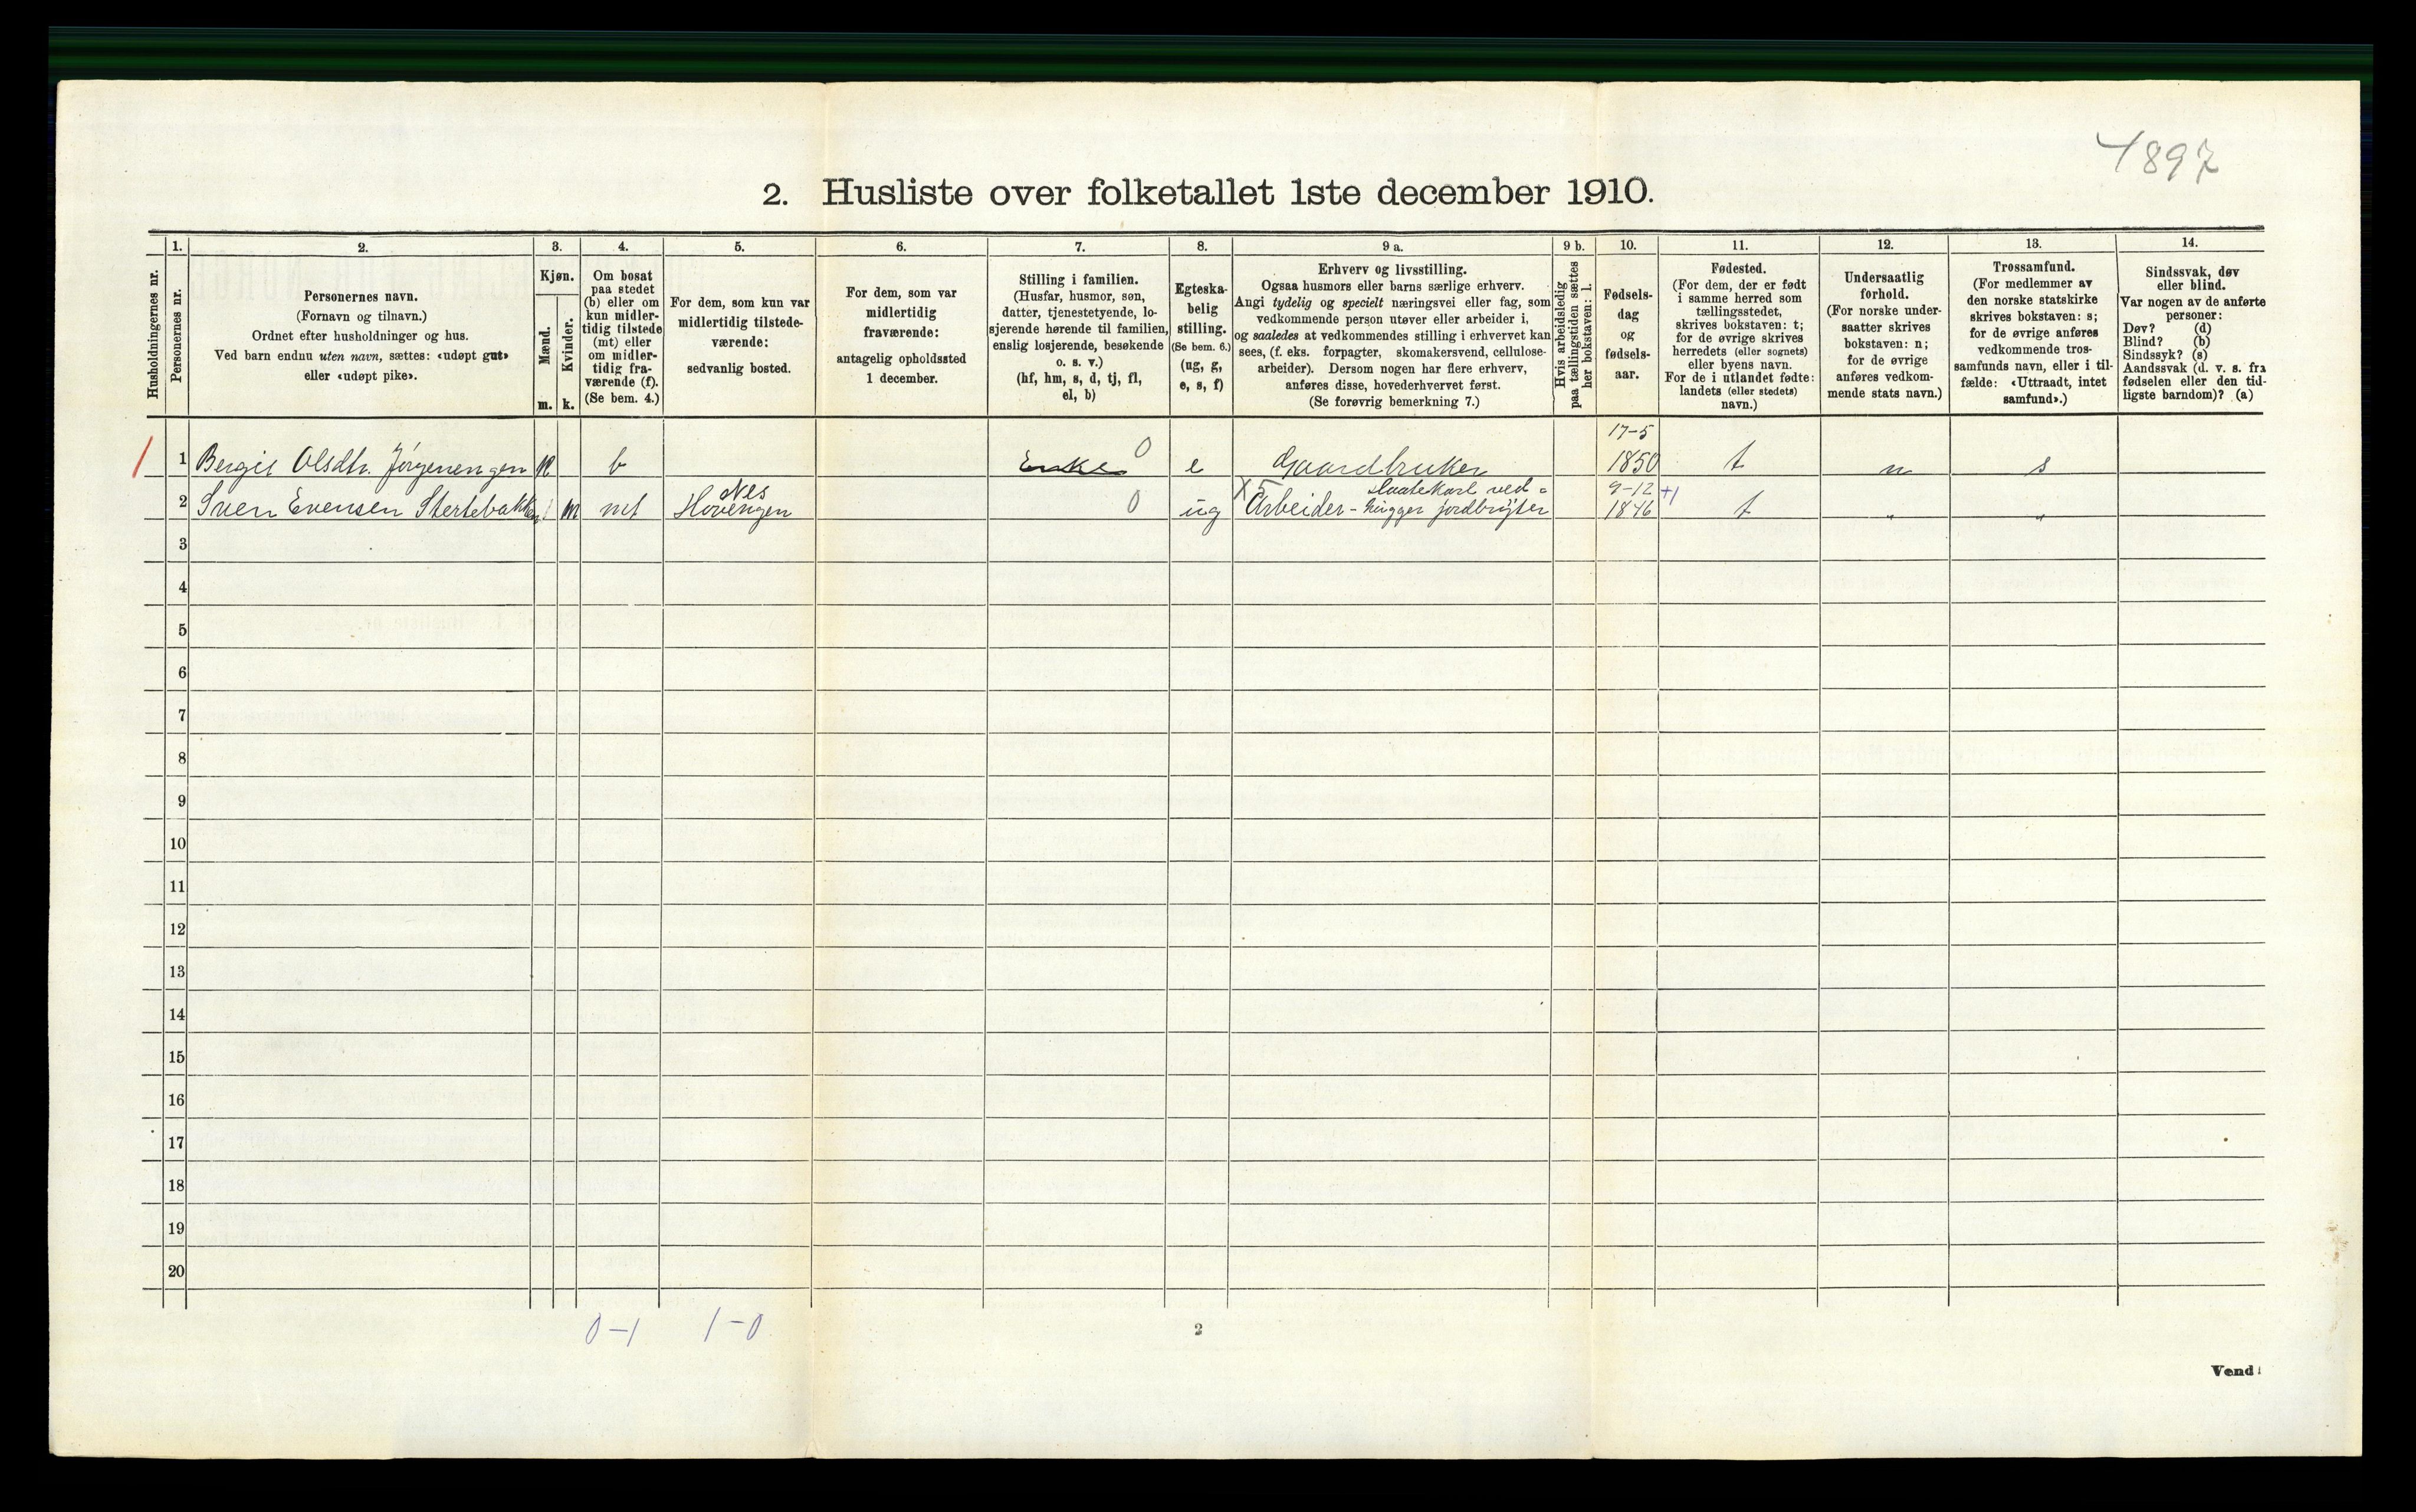 1897
2. Husliste over folketallet 1ste december 1910.
Husholdningernes nr.
1.
Personernes nr.
2.
Personernes navn.
(Fornavn og tilnavn.)
Ordnet efter husholdninger og hus.
Ved barn endnu uten navn, sættes: «udøpt gut»
eller «udøpt pike».
3.
Kjøn.
Mænd.
m.
Kvinder.
k.
4.
Om bosat
paa stedet
(b) eller om
kun midler-
tidig tilstede
(mt) eller
om midler-
tidig fra-
værende (f).
(Se bem. 4.)
5.
For dem, som kun var
midlertidig tilstede-
værende:
sedvanlig bosted.
6.
For dem, som var
midlertidig
fraværende:
antagelig opholdssted
1 december.
7.
Stilling i familien.
(Husfar, husmor, søn,
datter, tjenestetyende, lo-
sjerende hørende til familien,
enslig losjerende, besøkende
o. s. v.)
(hf, hm, s, d, tj, fl,
el, b)
8.
Egteska-
belig
stilling.
(Se bem. 6.)
(ug, g,
e, s, f)
9 a.
Erhverv og livsstilling.
Ogsaa husmors eller barns særlige erhverv.
Angi tydelig og specielt næringsvei eller fag, som
vedkommende person utøver eller arbeider i,
og saaledes at vedkommendes stilling i erhvervet kan
sees, (f. eks. forpagter, skomakersvend, cellulose-
arbeider). Dersom nogen har flere erhverv,
anføres disse, hovederhvervet først.
(Se forøvrig bemerkning 7.)
9 b.
Hvis arbeidsledig
paa tællingstiden sættes
her bokstaven: l.
10.
Fødsels-
dag
og
fødsels-
aar.
11.
Fødested.
(For dem, der er født
i samme herred som
tællingsstedet,
skrives bokstaven: t;
for de øvrige skrives
herredets (eller sognets)
eller byens navn.
For de i utlandet fødte:
landets (eller stedets)
navn.)
12.
Undersaatlig
forhold.
(For norske under-
saatter skrives
bokstaven: n;
for de øvrige
anføres vedkom-
mende stats navn.)
13.
Trossamfund.
(For medlemmer av
den norske statskirke
skrives bokstaven: s;
for de øvrige anføres
vedkommende tros-
samfunds navn, eller i til-
fælde: «Uttraadt, intet
samfund».)
14.
Sindssvak, døv
eller blind.
Var nogen av de anførte
personer:
Døv? (d)
Blind? (b)
Sindssyk? (s)
Aandssvak (d. v. s. fra
fødselen eller den tid-
ligste barndom)? (a)
1 1 Bergit Olsdtr. Jörgenengen K b Enke 0 e Gaardbruker 17-5 1850 t n s
2 Sven Evensen Stertebakken m mt Nes Hovengen 0 ug X5 Arbeider - ved- hugger jordbryter 9-12 1846 +1 t " "
3
4
5
6
7
8
9
10
11
12
13
14
15
16
17
18
19
20
0-1 1-0
2
Vend!